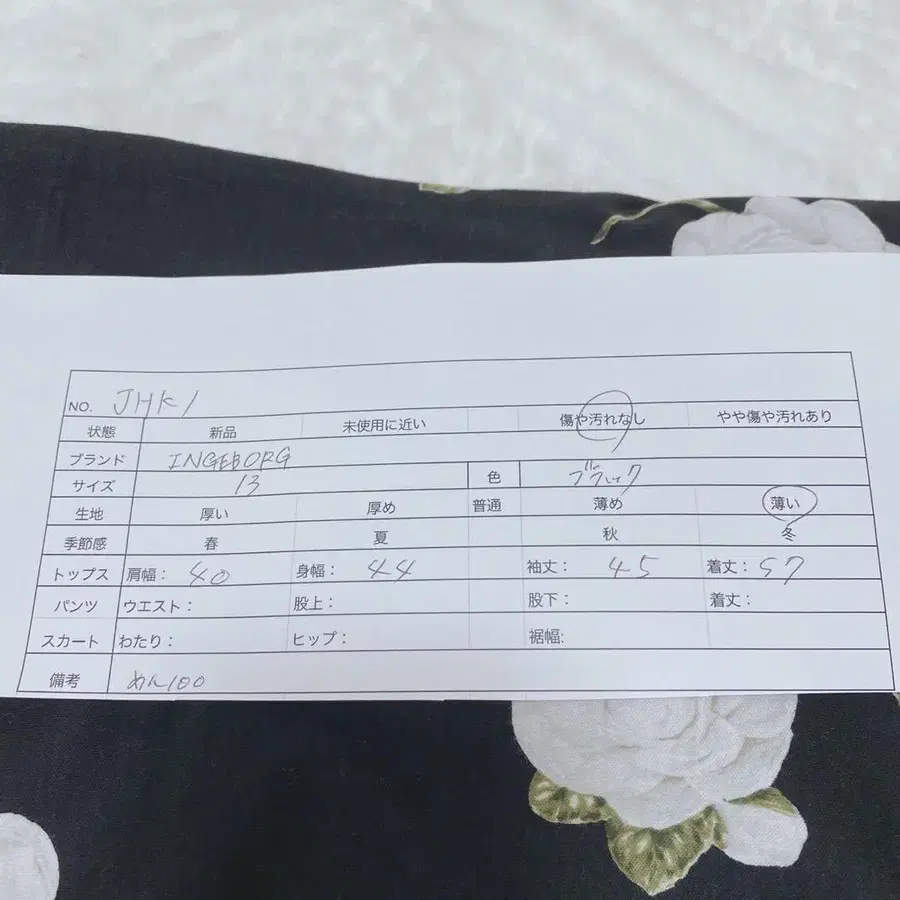 NO. JHK1
状態 新品 未使用に近い 傷や汚れなし やや傷や汚れあり
ブランド INGEBORG
サイズ 13 色 ブラック
生地 厚い 厚め 普通 薄め 薄い
季節感 春 夏 秋 冬
トップス 肩幅: 40 身幅: 44 袖丈: 45 着丈: 57
パンツ ウエスト: 股上: 股下: 着丈:
スカート わたり: ヒップ: 裾幅:
備考 めん100